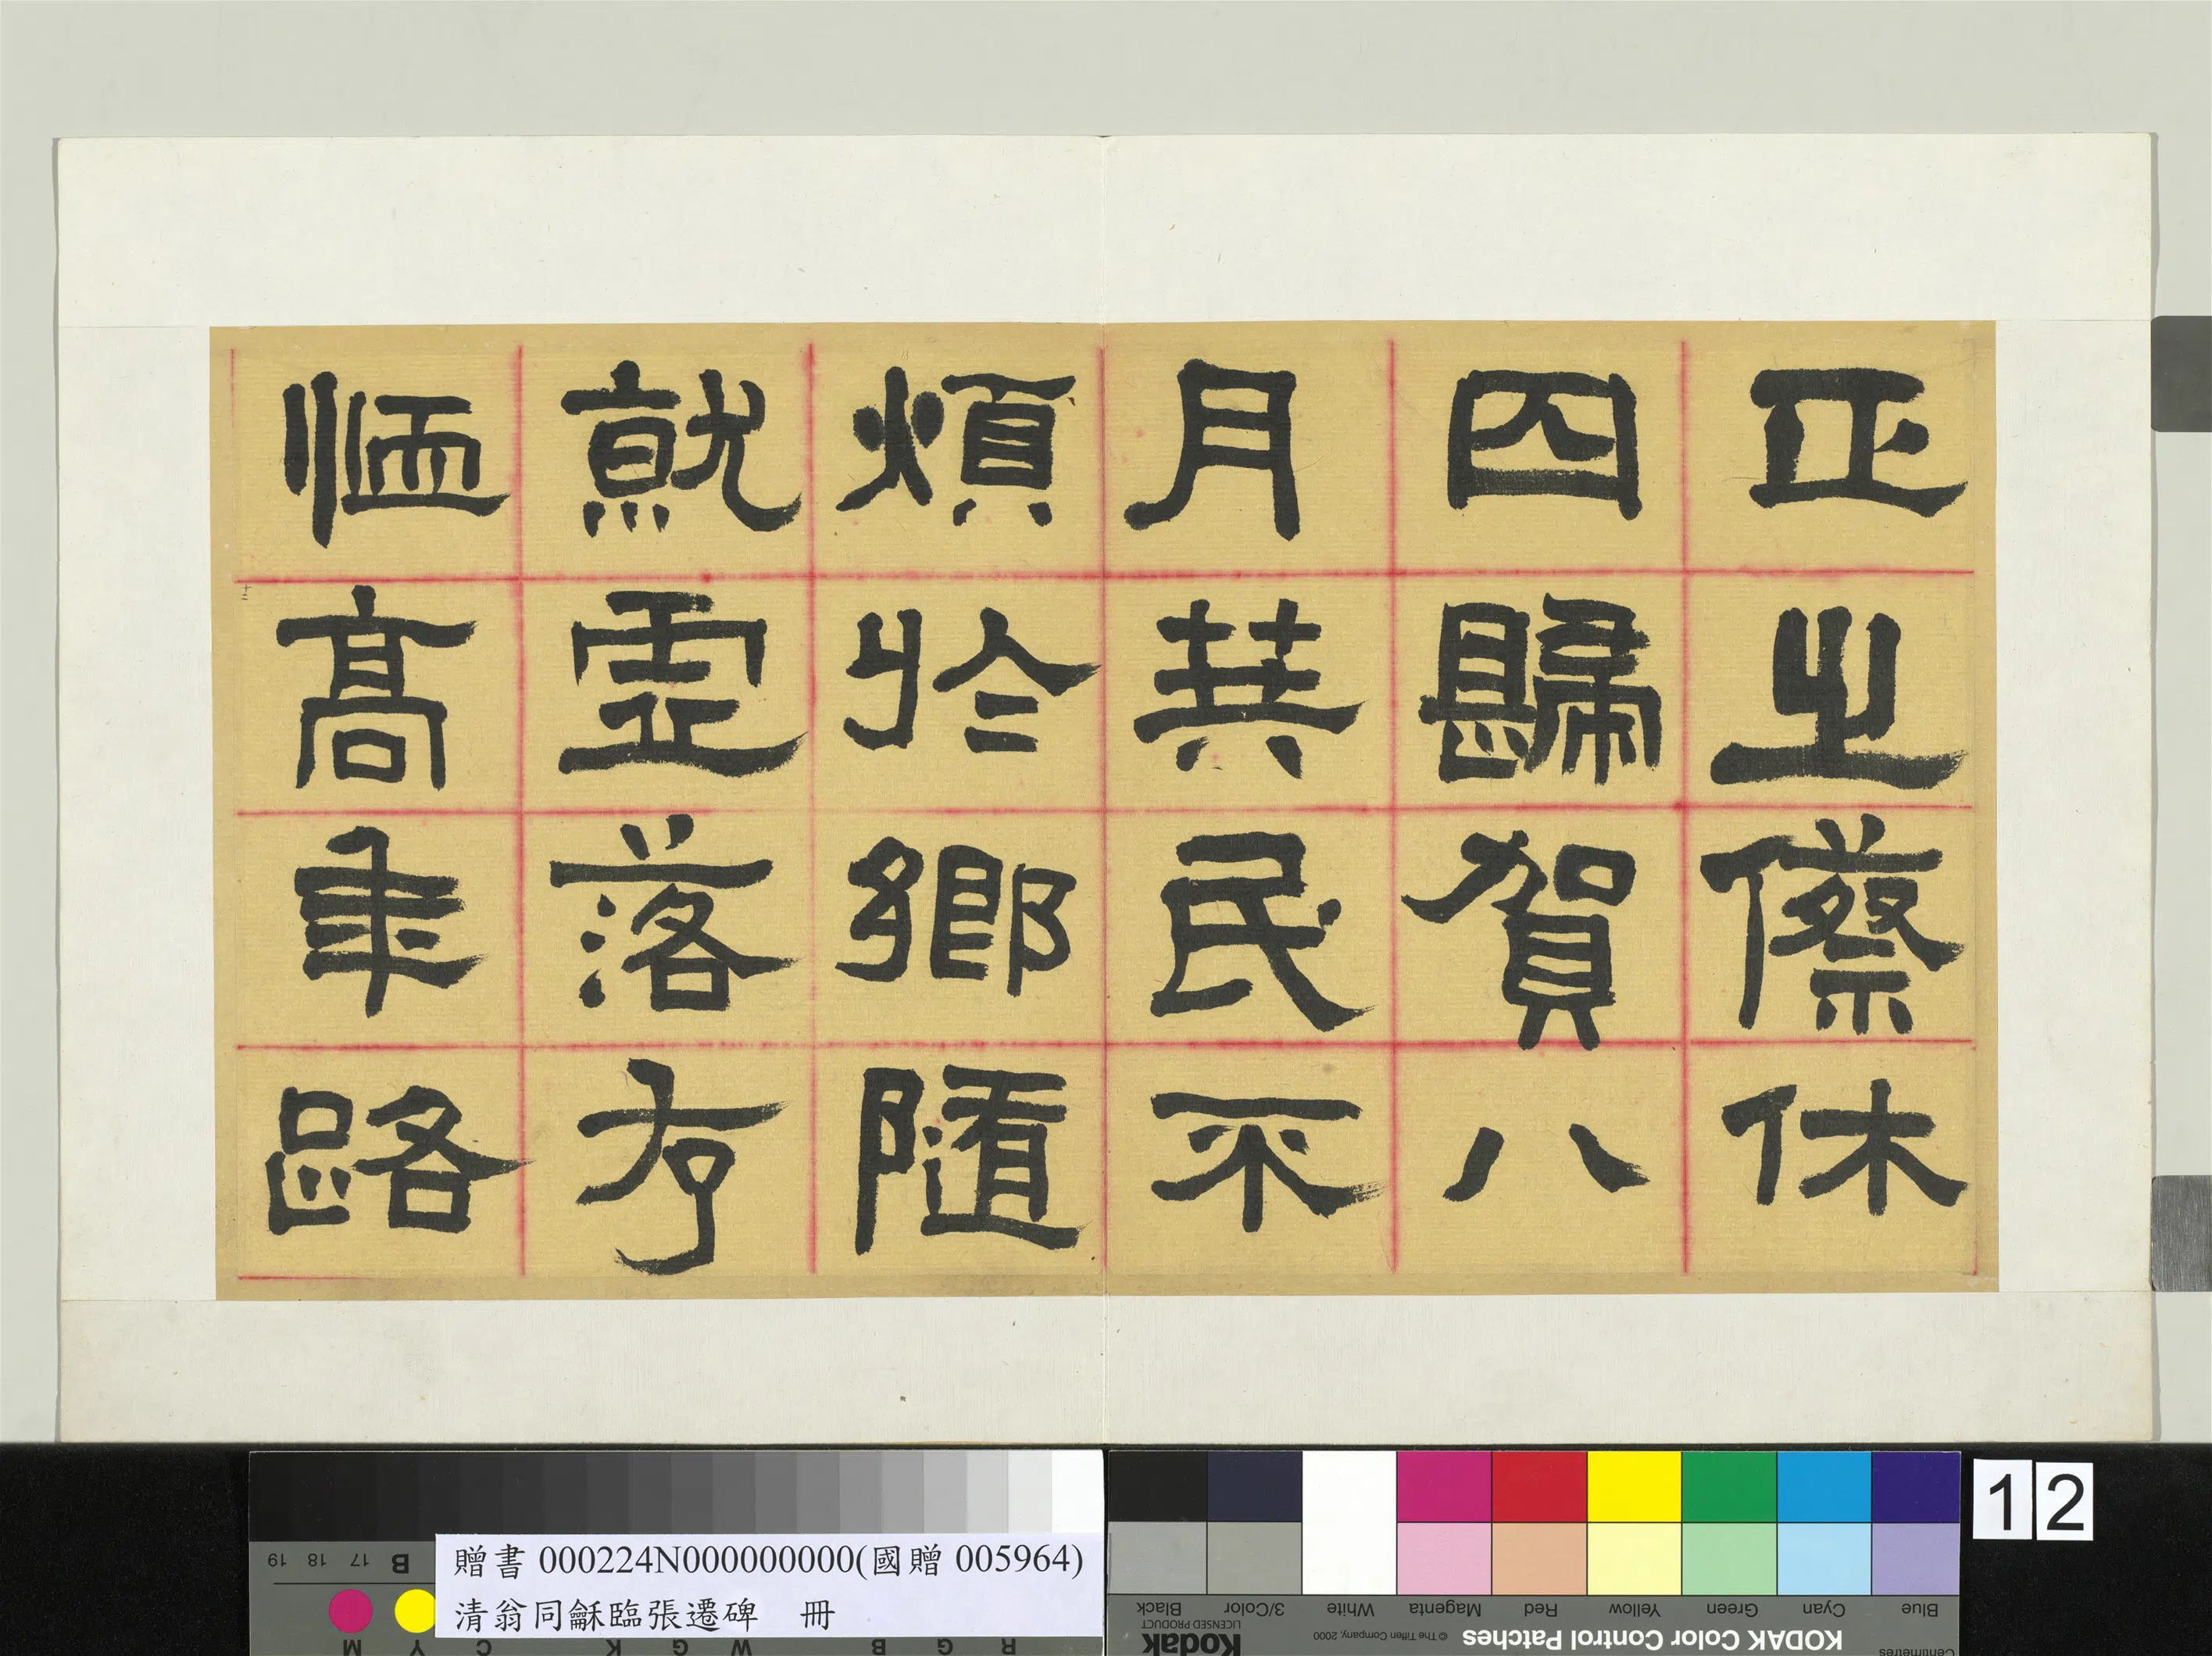 正之傺休
囚歸賀八
月筭民不
煩於鄉隨
就虛落存
恤高年路
十二
贈書 000224N000000000(國贈 005964)
清翁同龢臨張遷碑　冊
12
KODAK Color Control Patches
© The Tiffen Company, 2000
Kodak
LICENSED PRODUCT
Blue Cyan Green Yellow Red Magenta White 3/Color Black
Centimetres
R G B W G K C Y M
B 17 18 19